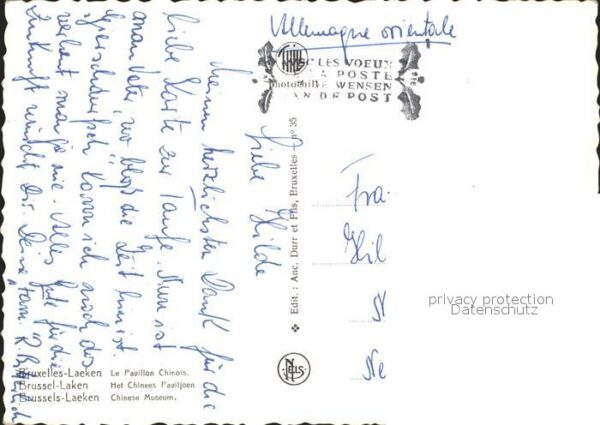 Allemagne orientale
AVEC LES VOEUX
LA POSTE
WENSEN
VAN DE POST
Liebe Hilde
Meinen herzlichsten Dank für die
liebe Karte zur Taufe. Nun ist
man Vater, wo bloß die Zeit hin ist.
sich noch des
man ja nie. Alles Gute für die
Zukunft wünscht Dir Deine Fam. R.
Edit. : Anc. Durr et Fils, Bruxelles - n° 35
Fra
Hil
N
Ne
privacy protection
Datenschutz
NELS
Bruxelles-Laeken Le Pavillon Chinois.
Brussel-Laken Het Chinees Paviljoen
Brussels-Laeken Chinese Museum.